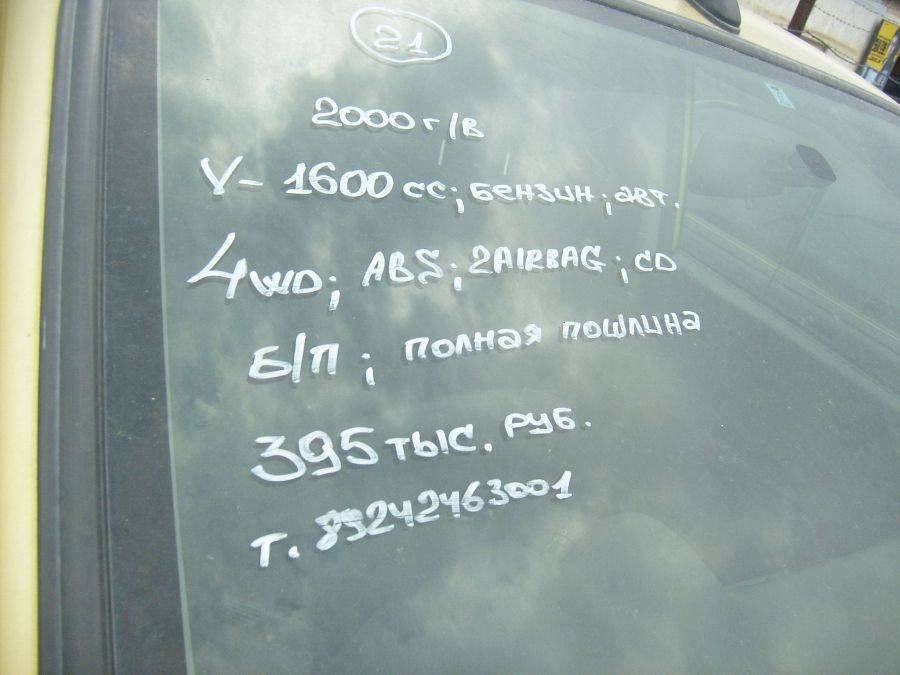 21
2000 г/в
V- 1600 cc; бензин; авт.
4WD; ABS; 2AIRBAG; CD
Б/П; полная пошлина
395 тыс. руб.
т. 89242463001